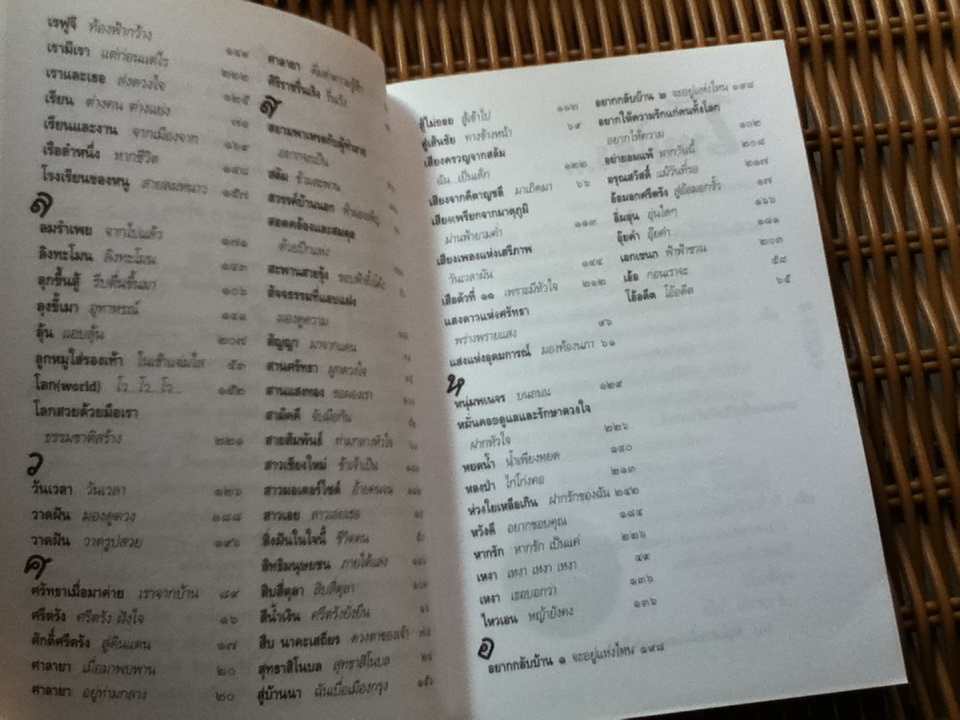 เรฟูจี ท้องฟ้ากว้าง
เรามีเรา แต่ก่อนแต่ไร ๑๙๙
เราและเธอ ส่งดวงใจ ๒๒๒
เรียน ต่างคน ต่างแย่ง ๑๒๕
เรียนและงาน จากเมืองจาก ๗๑
เรือลำหนึ่ง หากชีวิต ๑๖๔
โรงเรียนของหนู สายลมหนาว ๑๔๘
๑๕๗
ล
ลมรำเพย จากไปแล้ว
ลิงทะโมน ลิงทะโมน ๑๗๑
ลุกขึ้นสู้ รีบตื่นขึ้นมา ๑๔๓
ลุงขี้เมา อุทาหรณ์ ๑๐๖
ลุ้น แอบลุ้น ๑๔๑
ลูกหมูใส่รองเท้า ในเช้าแจ่มใส ๒๐๗
โลก(world) โว...โว..โว.. ๕๓
โลกสวยด้วยมือเรา ๑๕๒
ธรรมชาติสร้าง ๒๒๑
ว
วันเวลา วันเวลา ๑๒๖
วาดฝัน มองดูดวง ๑๘๘
วาดฝัน วาดรูปสวย ๑๙๖
ศ
ศรัทธาเมื่อมาค่าย เราจากบ้าน ๘๙
ศรีตรัง ศรีตรัง ฝังใจ ๑๖
ศักดิ์ศรีตรัง สู่ดินแดน ๑๗
ศาลายา เมื่อมาพบพาน ๒๐
ศาลายา อยู่ท่ามกลาง ๒๐
ศาลายา
ศิริราชรื่นเริง รื่นเริง
ส
สยามพาเพรสกับผู้ทำลาย
อยากจะเป็น
สลัม ข้ามสะพาน
สวรรค์บ้านนอก
สอดคล้องและสมดุล
ด้วยปีกแห่ง
สะพานสายรุ้ง ขอบฟ้า
สัจจธรรมที่แอบแฝง
มองดูความ
สัญญา มาจากแดน
สานศรัทธา ผูกดวงใจ
สานแสงทอง ขอมองเรา
สามัคคี จับมือกัน
สายสัมพันธ์ ท่ามกลางหัวใจ
สาวเชียงใหม่ ข้าเจ้าเป็น
สาวมอเตอร์ไซค์ อ้ายคนจน
สาวเอย สาวเอยเธอ
สิ่งฝันในใจนี้ ชีวิตคน
สิทธิมนุษยชน ภายใต้แสง
สิบสี่ตุลา สิบสี่ตุลา
สีน้ำเงิน ศรีตรังยั่งยืน
สืบ นาคะเสถียร ดวงตาของเจ้า
สุทธาสิโนบล สุทธาสิโนบล
สู่บ้านนา ฉันเบื่อเมืองกรุง ๑๕๖
สู้ไม่ถอย สู้เข้าไป ๑๑๒
สู่เส้นชัย ทางข้างหน้า ๖๙
เสียงครวญจากสลัม
ฉัน...เป็นเด็ก ๑๒๒
เสียงจากคีตาญชลี มาเถิดมา ๖๖
เสียงเพรียกจากมาตุภูมิ
ม่านฟ้ายามค่ำ ๑๑๓
เสียงเพลงแห่งเสรีภาพ
วันเวลาผัน ๑๔๔
เสือตัวที่ ๑๑ เพราะมีหัวใจ ๒๑๒
แสงดาวแห่งศรัทธา
พร่างพรายแสง ๙๖
แสงแห่งอุดมการณ์ มองท้องนภา ๖๑
ห
หนุ่มพเนจร บนถนน ๑๒๙
หมั่นคอยดูแลและรักษาดวงใจ
ฝากหัวใจ ๒๒๖
หยดน้ำ น้ำเพียงหยด ๑๔๐
หลงป่า ไก่โก่งคอ ๒๑๓
ห่วงใยเหลือเกิน ฝากรักของฉัน ๒๔๒
หวังดี อยากขอบคุณ ๑๘๔
หากรัก หากรัก เป็นแค่ ๒๒๖
เหงา เหงา เหงา เหงา ๔๙
เหงา เธอบอกว่า ๑๓๖
ไหวเอน หญ้ายังคง ๑๓๖
อ
อยากกลับบ้าน ๑ จะอยู่แห่งไหน ๑๙๘
อยากกลับบ้าน ๒ จะอยู่แห่งไหน ๑๙๘
อยากให้ความรักแก่คนทั้งโลก
อยากให้ความ ๑๐๒
อย่ายอมแพ้ หากวันนี้ ๒๐๘
อรุณสวัสดิ์ แม้วันที่รอ ๒๑๗
อ้อมอกศรีตรัง สู่อ้อมอกรั้ว ๑๗
อิ่มอุ่น อุ่นใดๆ ๑๖๖
อุ๊ยคำ อุ๊ยคำ... ๑๘๑
เอกเขนก ฟ้าฟ้าชวน ๒๐๓
เอ้อ ก่อนเราจะ ๕๘
โอ้อดีต โอ้อดีต ๖๕